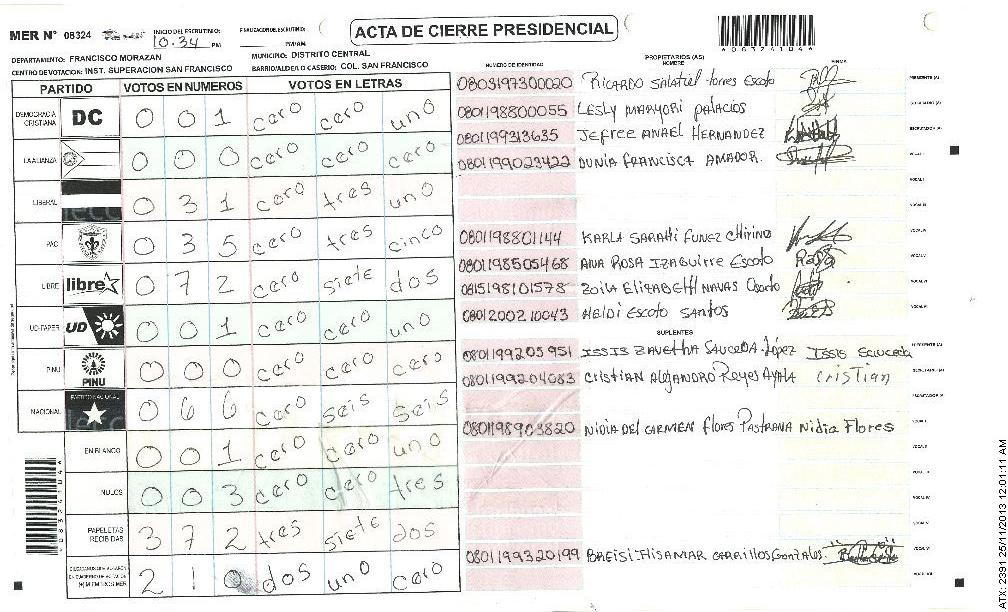 MER N° 08324
INICIO DEL ESCRUTINIO:
10:34 PM
FINALIZACION ESCRUTINIO:
PM/AM
ACTA DE CIERRE PRESIDENCIAL
DEPARTAMENTO: FRANCISCO MORAZAN
MUNICIPIO: DISTRITO CENTRAL
CENTRO DE VOTACION: INST. SUPERACION SAN FRANCISCO
BARRIO/ALDEA O CASERIO: COL. SAN FRANCISCO
PARTIDO VOTOS EN NUMEROS VOTOS EN LETRAS
DEMOCRACIA CRISTIANA DC 0 0 1 cero cero uno
LA ALIANZA 0 0 0 cero cero cero
LIBERAL 0 3 1 cero tres uno
PAC 0 3 5 cero tres cinco
LIBRE libre 0 7 2 cero siete dos
UD-FAPER UD 0 0 1 cero cero uno
PINU PINU 0 0 0 cero cero cero
NACIONAL PARTIDO NACIONAL 0 6 6 cero seis seis
EN BLANCO 0 0 1 cero cero uno
NULOS 0 0 3 cero cero tres
PAPELETAS RECIBIDAS 3 7 2 tres siete dos
2 1 0 dos uno cero
NUMERO DE IDENTIDAD
PROPIETARIOS (AS)
NOMBRE
FIRMA
0803197300020 RICARDO Salatiel torres Escoto PRESIDENTE (A)
080198800055 LESLY MARYORI PALACIOS SECRETARIO (A)
080119931 3635 Jefree ANAEL HERNANDEZ ESCRUTADOR (A)
0801199023422 DUNIA FRANCISCA AMADOR. VOCAL I
VOCAL II
VOCAL III
0801198801144 KARLA SARAHI FUNEZ CHIRINO VOCAL IV
0801198505468 ANA ROSA IZAGUIRRE Escoto Rosa VOCAL V
0815198101578 ZOILA ELIZABETH NAVAS VOCAL VI
0801200210043 HEIDI Escoto SANTOS
SUPLENTES
0801199205951 ISSIS SAUCEDA López ISSIS Sauceda PRESIDENTE (A)
0801199204083 CRISTIAN Alejandro Reyes AYALA Cristian SECRETARIO (A)
ESCRUTADOR (A)
0801198903820 NIDIA DEL CARMEN flores PASTRANA Nidia Flores VOCAL I
VOCAL II
VOCAL III
VOCAL IV
VOCAL V
0801199320199 CARRILLOS VOCAL VI
ATX: 2391 25/11/2013 12:01:11 AM